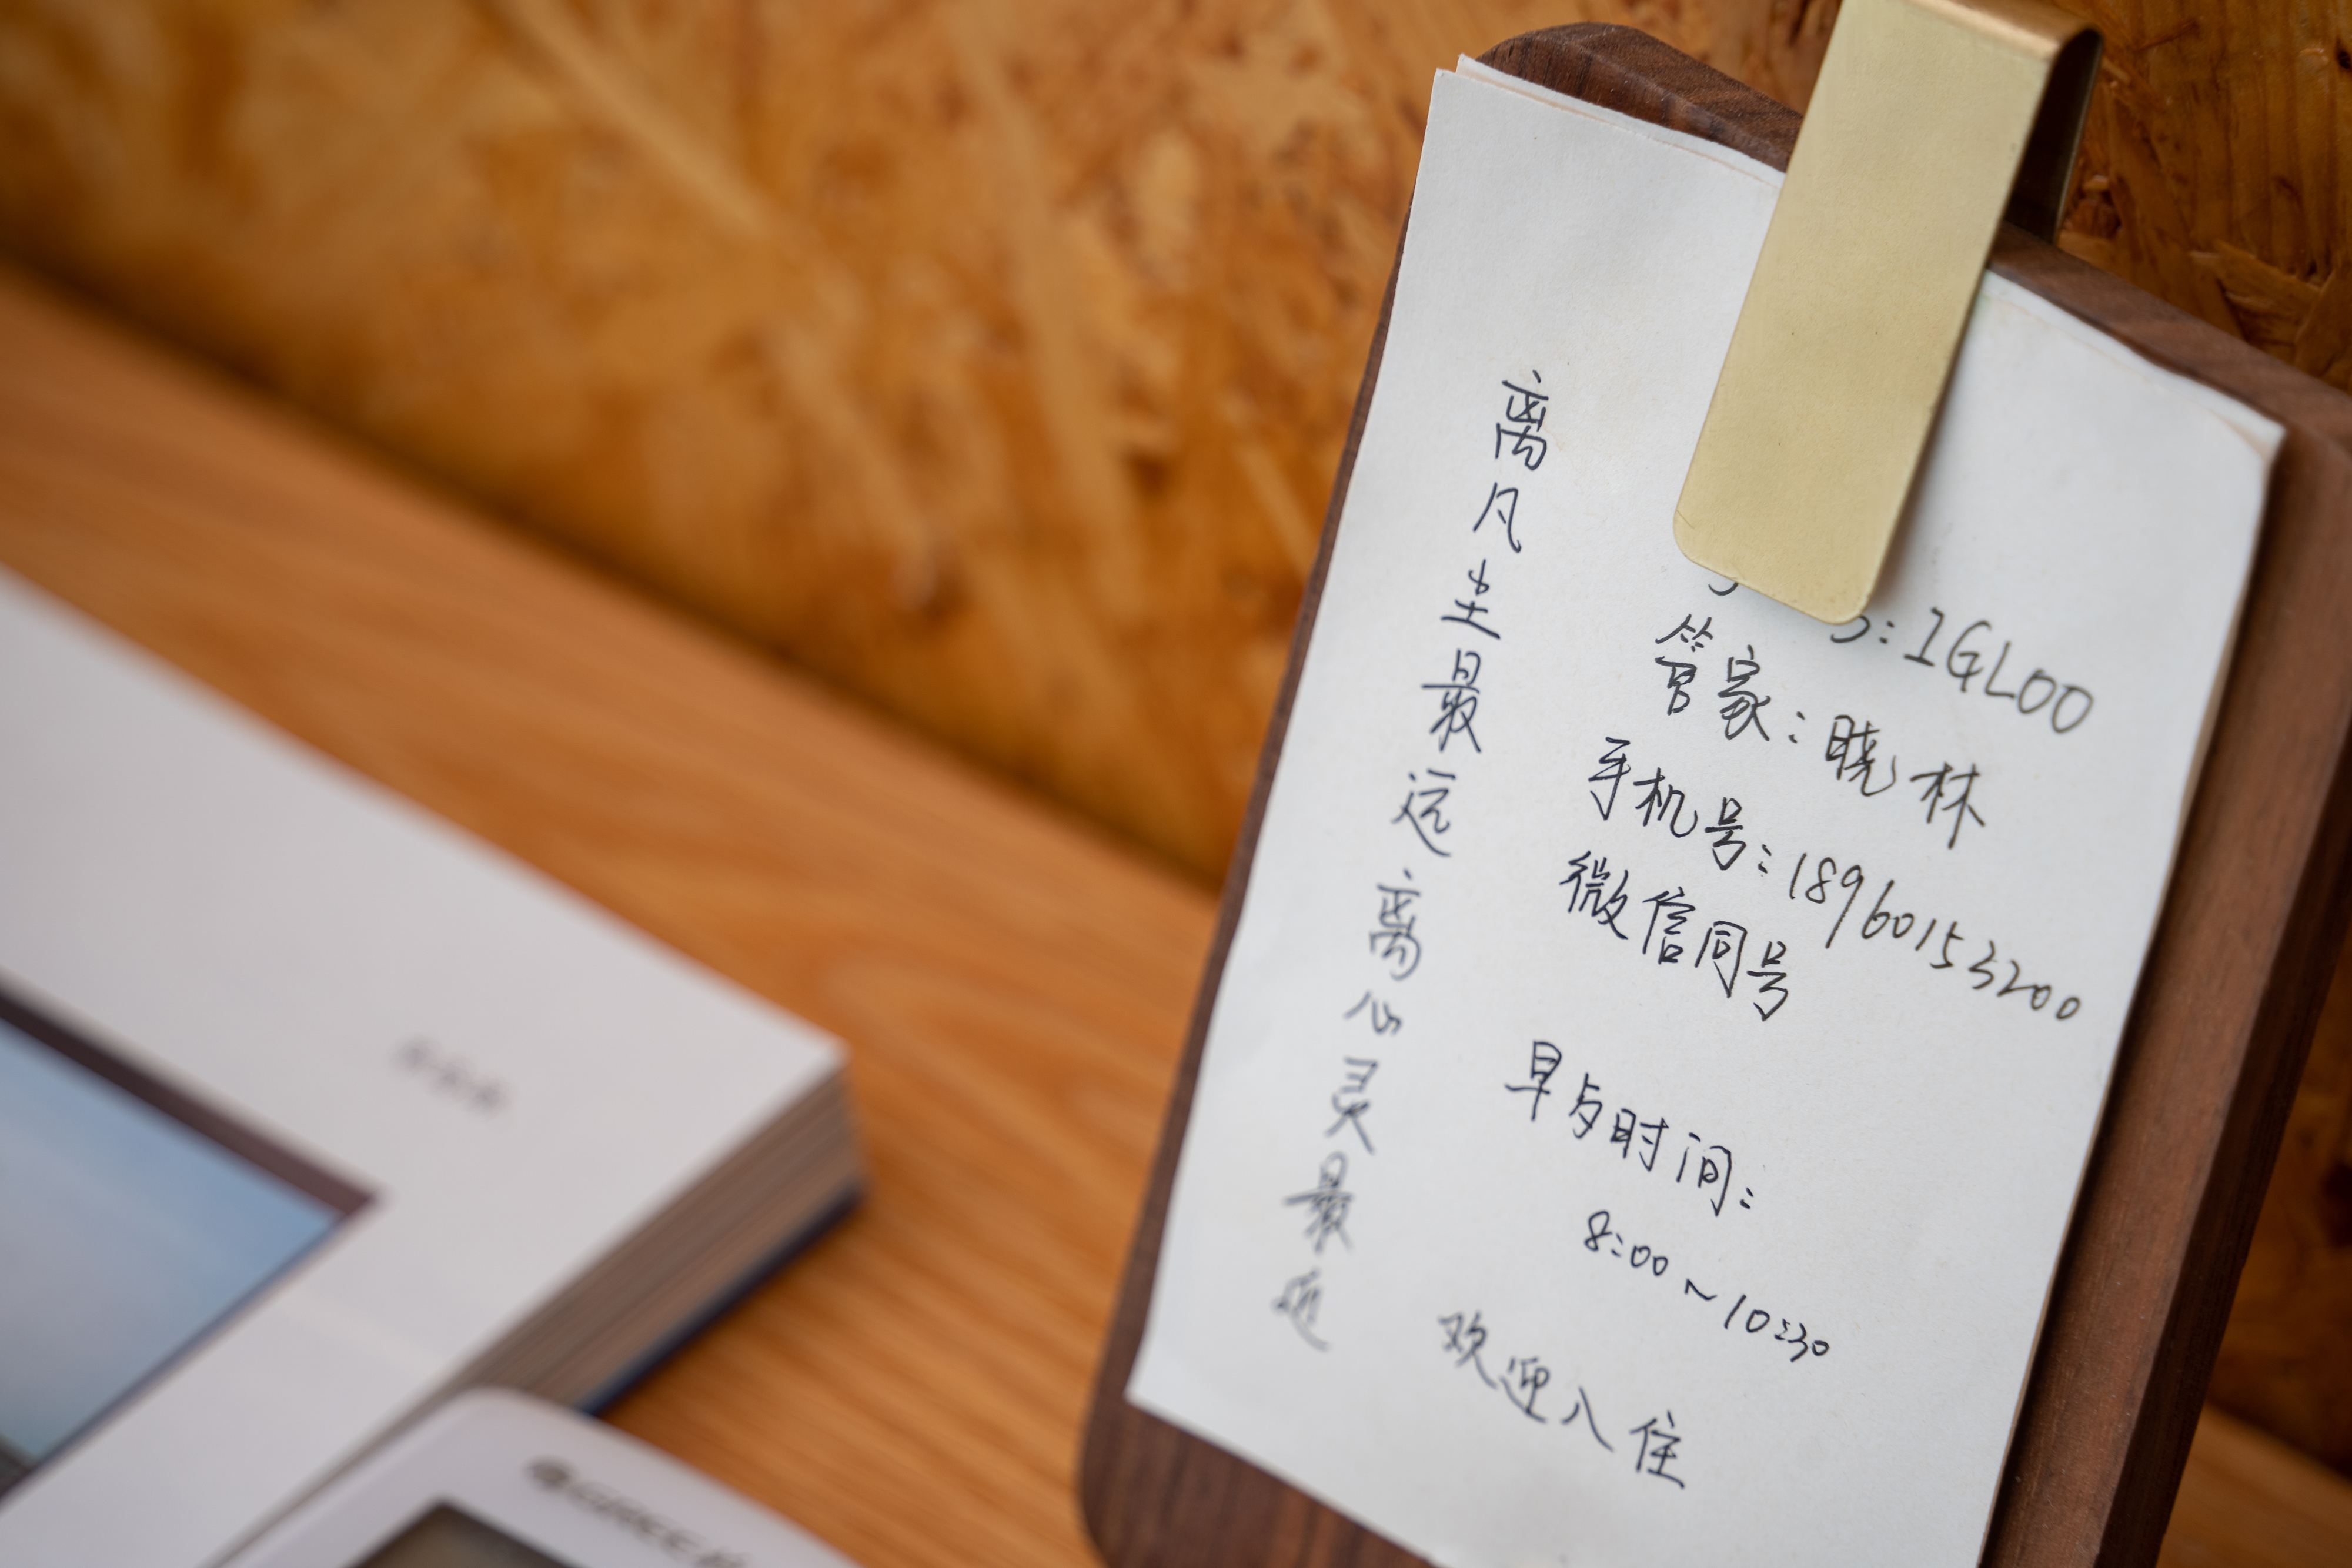 离凡尘最远离心灵最近
: IGLOO
管家: 晓林
手机号: 18960153200
微信同号
早与时间:
8:00~10:30
欢迎入住
GREE